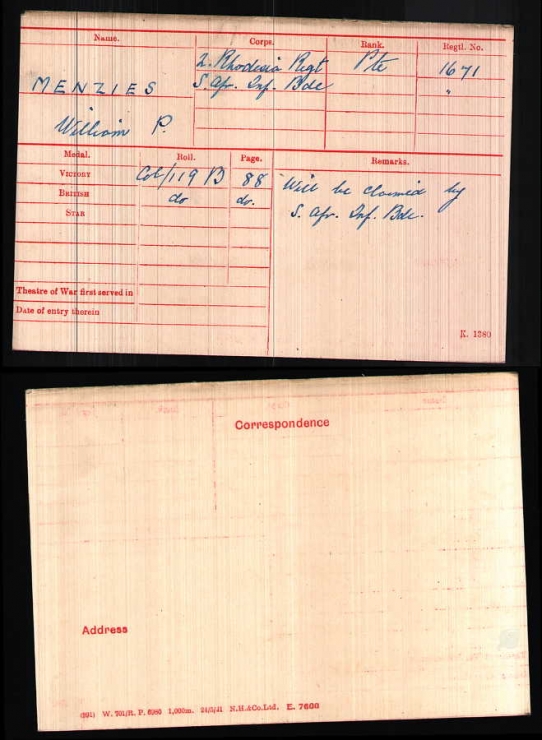 Name. Corps. Rank. Regtl. No.
2. Rhodesia Regt Pte 1671
MENZIES S. Afr. Inf. Bde "
William P.
Medal. Roll. Page. Remarks.
VICTORY Col/119 B 88 Will be claimed by
BRITISH do do. S. Afr. Inf. Bde.
STAR
Theatre of War first served in
Date of entry therein
K. 1380
Correspondence
Address
W. 701/R. P. 1,000m. N.H.&Co.Ltd. E. 7600